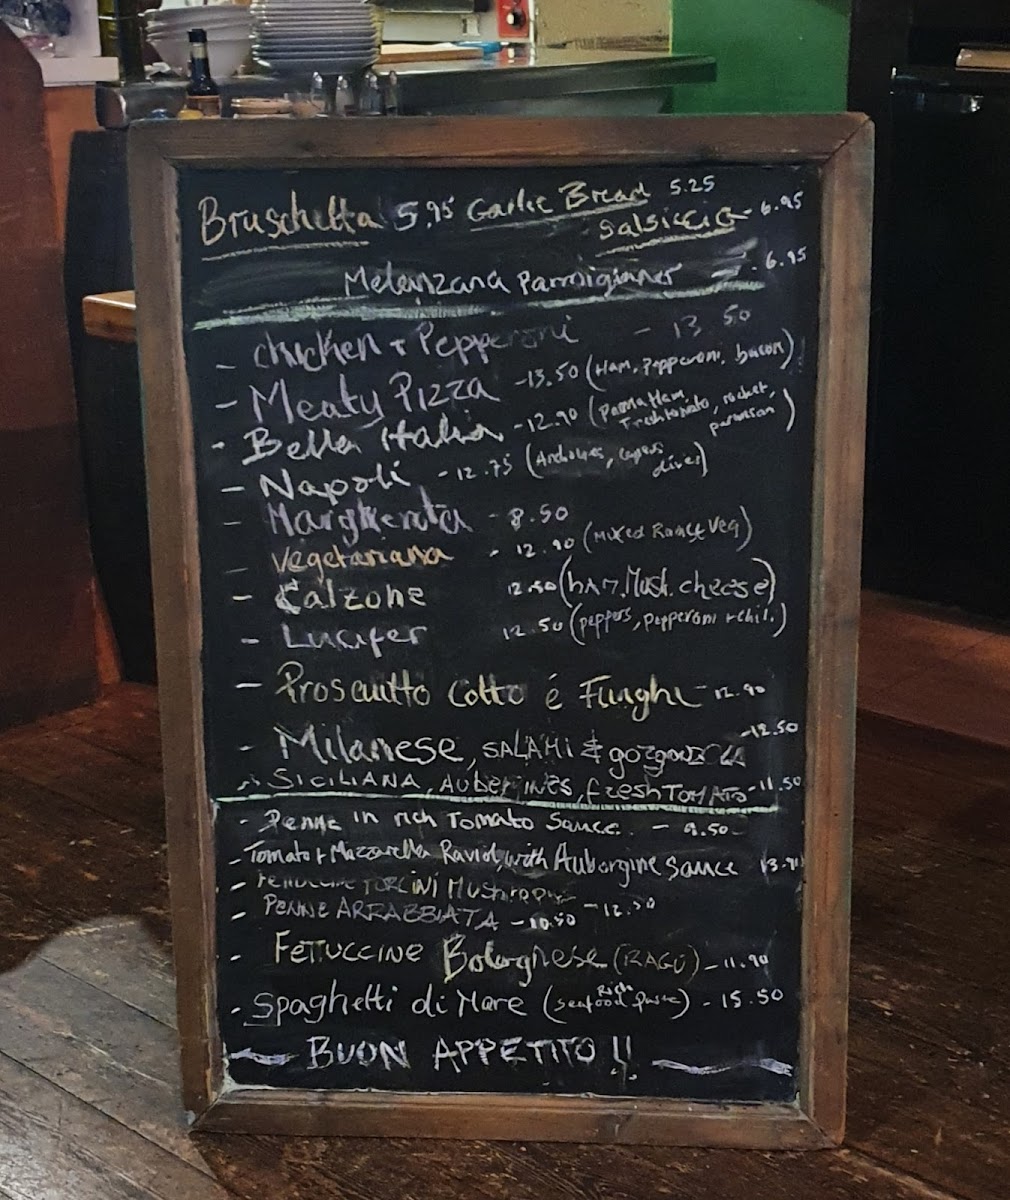 Bruschetta 5.95 Garlic Bread 5.25
Salsiccia - 6.95
Melanzana Parmigiana - 6.95
- Chicken + Pepperoni - 13.50
- Meaty Pizza - 13.50 (Ham, Pepperoni, bacon)
- Bella Italia - 12.90 (Parma Ham, Fresh tomato, rocket, parmesan)
- Napoli - 12.75 (Anchovies, capers, olives)
- Margherita - 8.50
- Vegetariana - 12.90 (Mixed Roast Veg)
- Calzone 12.50 (HAM, Mush. cheese)
- Lucifer 12.50 (peppers, pepperoni + chil.)
- Proscuitto Cotto é Funghi - 12.90
- Milanese, SALAMI & gorgonzola - 12.50
- SICILIANA, AUBERGINES, freshTOMATO - 11.50
- Penne in rich Tomato Sauce - 9.50
- Tomato + Mozzarella Ravioli with Auborgine Sauce 13.90
- FETTUCCINE PORCINI MUSHROOM - 12.50
- PENNE ARRABBIATA - 10.50
- FETTUCCINE Bolognese (RAGÚ) - 11.90
- Spaghetti di Mare (Rich seafood paste) - 15.50
BUON APPETITO !!